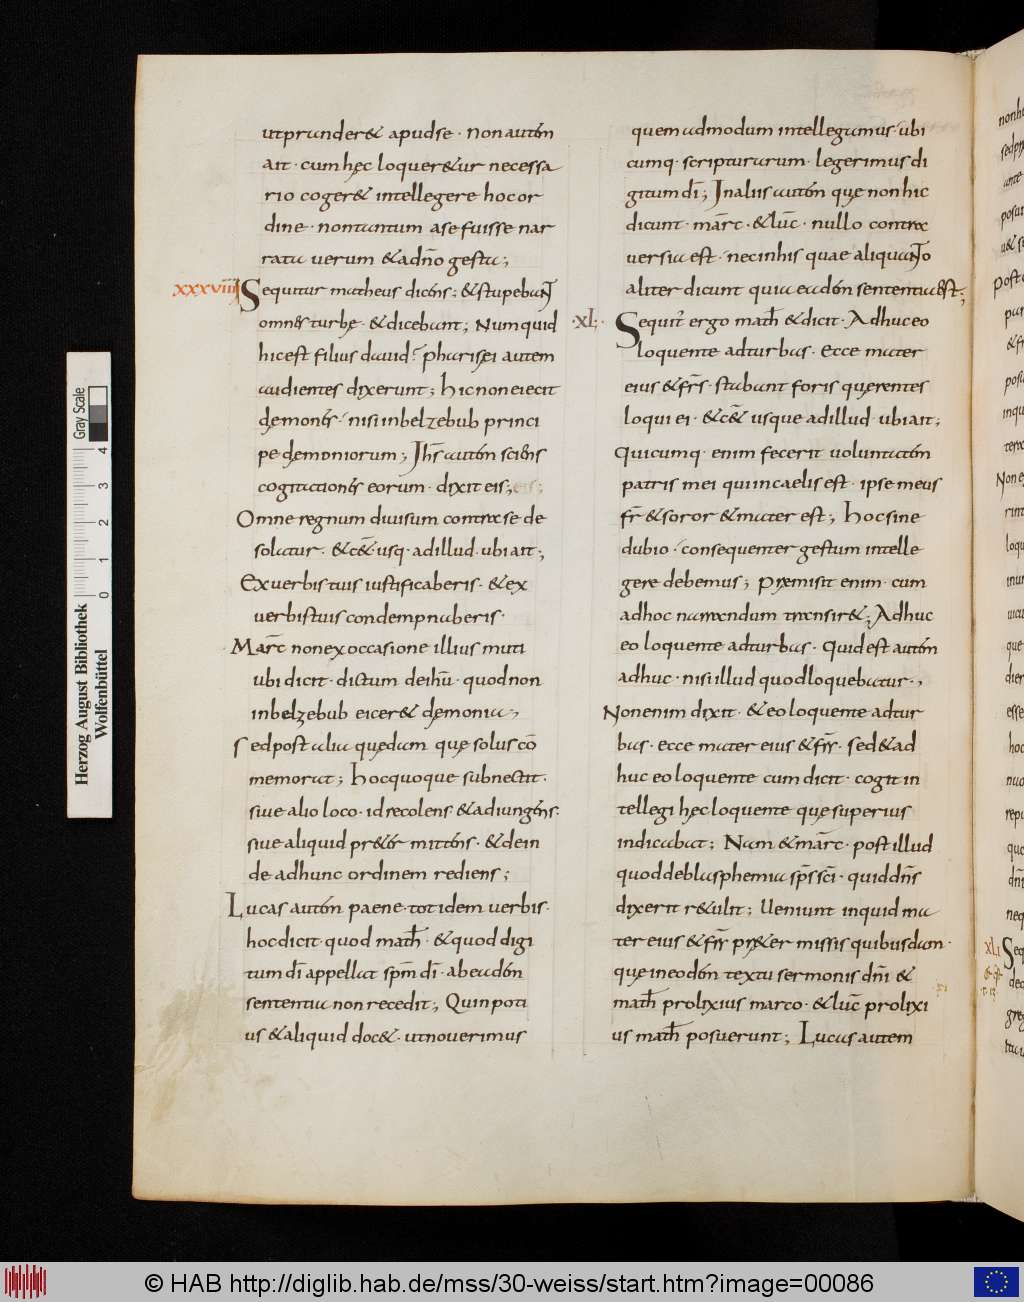 utpranderet apud se · non autē
ait · cum hęc loqueretur necessa
rio cogeret intellegere hoc or
dine · non tantum a se fuisse nar
rata uerum & a dño gesta;
xxxviiii Sequitur matheus dicens; & stupebant
omnes turbę · & dicebant; Numquid
hic est filius dauid? Pharisęi autem
audientes dixerunt; hic non eiecit
dęmones · nisi in belzebub princi
pe dęmoniorum; Jhs̄ autem sciens
cogitationes eorum · dixit eis;
Omne regnum diuisum contra se de
solatur · & cet̄ usq · ad illud · ubi ait;
Ex uerbis tuis iustificaberis · & ex
uerbis tuis condempnaberis ·
Marc̄ non ex occasione illius muti
ubi dicit · dictum de ihū · quod non
in belzebub eiceret dęmonia;
Sed post alia quędam quę solus cō
memorat; hoc quoque subnectit ·
siue alio loco · id recolens · & adiungens ·
siue aliquid prętermittens · & dein
de ad hunc ordinem rediens;
Lucas autem paene · totidem uerbis ·
hoc dicit quod math̄ · & quod digi
tum dī appellat spm̄ dī · ab eadem
sententia non recedit; Quin poti
us & aliquid docet · ut nouerimus
quemadmodum intellegamus · ubi
cumq · scripturarum · legerimus di
gitum dī; In aliis autem quę non hic
dicunt · marc̄ · & luc̄ · nullo contra
uersia est · nec in his quae aliquanto
aliter dicunt quia eadem sententia est;
·xl;· Sequit̄ ergo math̄ & dicit · Adhuc eo
loquente ad turbas · ecce mater
eius & frs̄ · stabant foris quęrentes
loqui ei · & cet̄ usque ad illud · ubi ait;
Quicumq · enim fecerit uoluntatem
patris mei qui in caelis est · ipse meus
fr̄ & soror & mater est; hoc sine
dubio · consequenter gestum intelle
gere debemus; Pręmisit enim · cum
ad hoc narrandum transiret; Adhuc
eo loquente ad turbas · Quid est autem
adhuc · nisi illud quod loquebatur;
Non enim dixit · & eo loquente ad tur
bas · ecce mater eius & frr̄ · sed & ad
huc eo loquente cum dicit · cogit in
tellegi hęc loquente quę superius
indicabat; Nam & marc̄ · post illud
quod de blasphemia sps̄ scī · quid dns̄
dixerit retulit; Ueniunt inquid ma
ter eius & frr̄ prętermissis quibusdam ·
quę in eodem textu sermonis dñi &
math̄ prolixius marco · & luc̄ prolixi
us math̄ posuerunt; Lucas autem
xli
Herzog August Bibliothek
Wolfenbüttel
0 1 2 3 4
Gray Scale
© HAB http://diglib.hab.de/mss/30-weiss/start.htm?image=00086